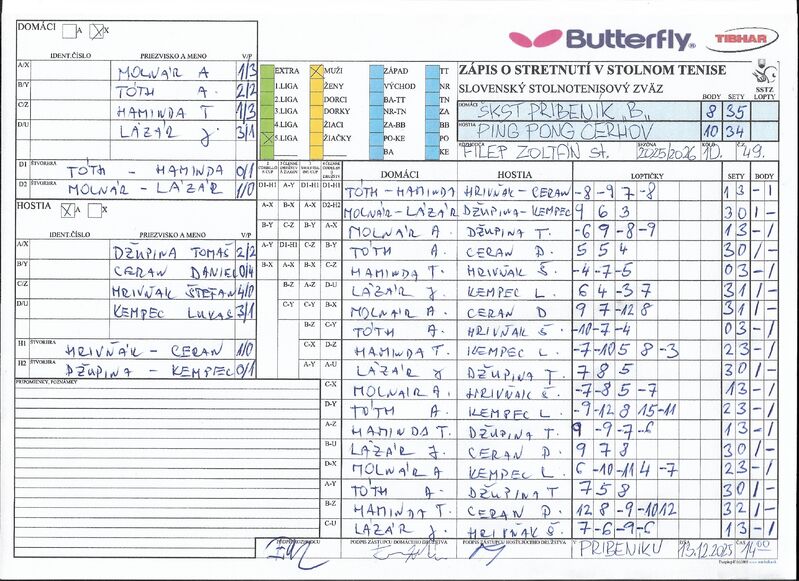 DOMÁCI A X
Butterfly® TIBHAR
IDENT.ČÍSLO PRIEZVISKO A MENO V/P
A/X MOLNÁR A 1/3
B/Y TÓTH A. 2/2
C/Z HAMINDA T 1/3
D/U LÁZÁR J. 3/1
D1 ŠTVORHRA TÓTH - HAMINDA 0/1
D2 ŠTVORHRA MOLNÁR - LÁZÁR 1/0
HOSTIA A X
IDENT.ČÍSLO PRIEZVISKO A MENO V/P
A/X DŽUPINA TOMÁŠ 2/2
B/Y CERAN DANIEL 0/4
C/Z HRIVŇÁK ŠTEFAN 4/0
D/U KEMPEC LUKÁŠ 3/1
H1 ŠTVORHRA HRIVŇÁK - CERAN 1/0
H2 ŠTVORHRA DŽUPINA - KEMPEC 0/1
PRIPOMIENKY, POZNÁMKY
EXTRA MUŽI ZÁPAD TT
1.LIGA ŽENY VÝCHOD NR
2.LIGA DORCI BA-TT TN
3.LIGA DORKY NR-TN ZA
4.LIGA ŽIACI ZA-BB BB
5.LIGA ŽIAČKY PO-KE PO
BA KE
ZÁPIS O STRETNUTÍ V STOLNOM TENISE
SLOVENSKÝ STOLNOTENISOVÝ ZVÄZ
SSTZ
BODY SETY LOPTY
DOMÁCI ŠKST PRIBENÍK „B„ 8 35
HOSTIA PING PONG CERHOV 10 34
FILEP ZOLTÁN st. SEZÓNA 2025/2026 KOLO 10. Č. 49.
DOMÁCI HOSTIA LOPTIČKY SETY BODY
D1-H1 A-Y D1-H1 D1-H1 TÓTH - HAMINDA HRIVŇÁK - CERAN -8 -9 7 -8 1 3 - 1
A-X B-X A-X D2-H2 MOLNÁR - LÁZÁR DŽUPINA - KEMPEC 9 6 3 3 0 1 -
B-Y C-Z B-Y A-X MOLNÁR A. DŽUPINA T. -6 9 -8 -9 1 3 - 1
A-Y D1-H1 C-Z B-Y TÓTH A. CERAN D. 5 5 4 3 0 1 -
B-X A-X B-X C-Z HAMINDA T. HRIVŇÁK Š. -4 -7 -5 0 3 - 1
LÁZÁR J. KEMPEC L. 6 4 -3 7 3 1 1 -
MOLNÁR A. CERAN D 9 7 -12 8 3 1 1 -
TÓTH A. HRIVŇÁK Š. -10 -7 -4 0 3 - 1
HAMINDA T. KEMPEC L. -7 -10 5 8 -3 2 3 - 1
LÁZÁR J DŽUPINA T. 7 8 5 3 0 1 -
C-X MOLNÁR A. HRIVŇÁK Š. -7 -8 5 -7 1 3 - 1
D-Y TÓTH A. KEMPEC L. -9 -12 8 15 -11 2 3 - 1
A-Z HAMINDA T. DŽUPINA T. 9 -9 -7 -6 1 3 - 1
B-U LÁZÁR J. CERAN D. 9 7 8 3 0 1 -
D-X MOLNÁR A KEMPEC L. 6 -10 -11 4 -7 2 3 - 1
A-Y TÓTH A. DŽUPINA T 7 5 8 3 0 1 -
B-Z HAMINDA T. CERAN D. 12 8 -9 -10 12 3 2 1 -
C-U LÁZÁR J. HRIVŇÁK Š. -7 -6 -9 -6 1 3 - 1
PODPIS ZÁSTUPCU DOMÁCEHO DRUŽSTVA PODPIS ZÁSTUPCU HOSŤUJÚCEHO DRUŽSTVA V PRIBENÍKU DŇA 13.12.2025 ČAS 14⁰⁰